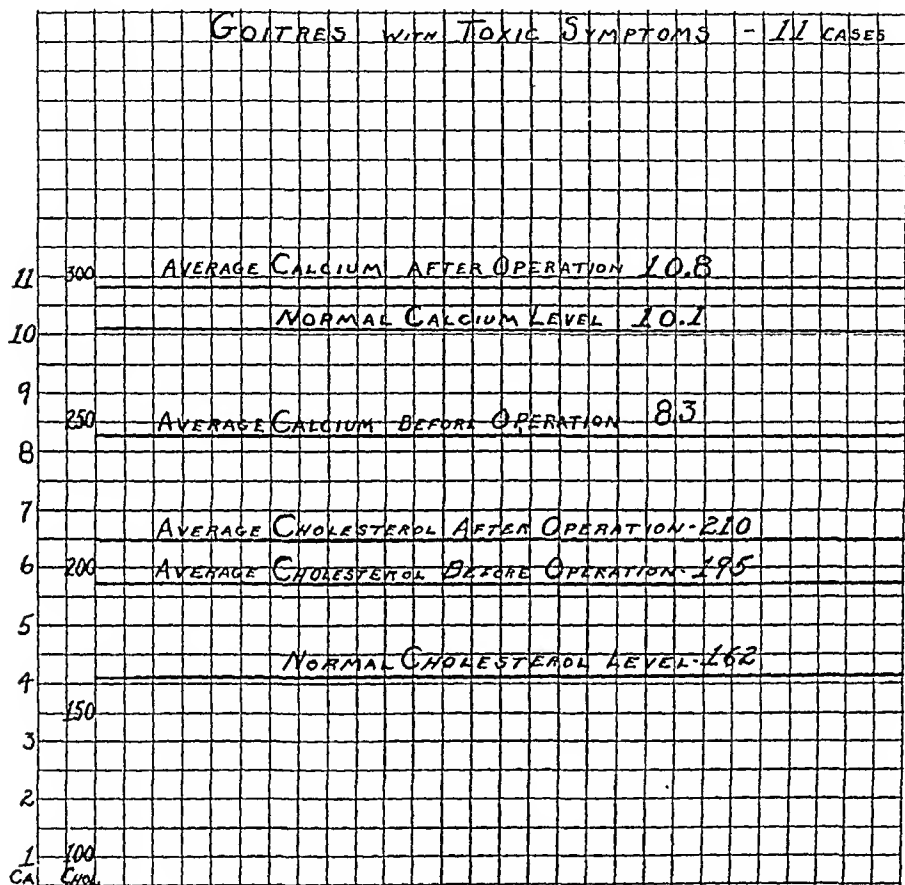 GOITRES WITH TOXIC SYMPTOMS - 11 CASES
11 300 AVERAGE CALCIUM AFTER OPERATION 10.8
NORMAL CALCIUM LEVEL 10.1
10
9
250 AVERAGE CALCIUM BEFORE OPERATION 83
8
7
AVERAGE CHOLESTEROL AFTER OPERATION-210
6 200 AVERAGE CHOLESTEROL BEFORE OPERATION-195
5
NORMAL CHOLESTEROL LEVEL-162
4
150
3
2
1 100
CA CHOL.